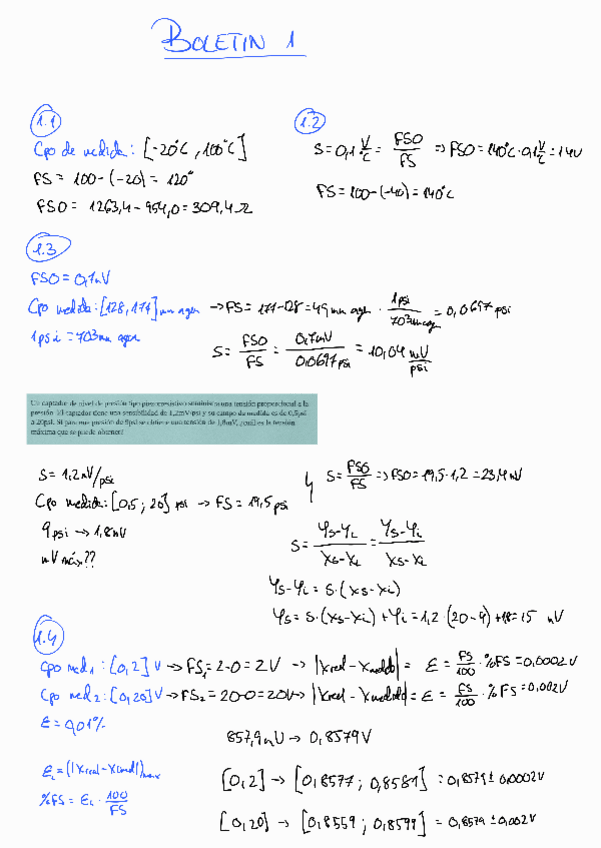 BOLETIN 1
1.1
Cpo de medida: [-20°C, 100°C]
FS = 100-(-20) = 120°
FSO = 1263,4 - 954,0 = 309,4 Ω
1.2
S = 0,1 V/°C = FSO/FS ⇒ FSO = 140°C · 0,1 V/°C = 14V
FS = 100-(-40) = 140°C
1.3
FSO = 0,7mV
Cpo medida: [128, 177] mm agua → FS = 177-128 = 49 mm agua · 1psi/703mm agua = 0,0697 psi
1psi = 703mm agua
S = FSO/FS = 0,7mV/0,0697psi = 10,04 mV/psi
Un captador de nivel de presión tipo piezorresistivo suministra una tensión proporcional a la
presión. El captador tiene una sensibilidad de 1,2mV/psi y su campo de medida es de 0,5psi
a 20psi. Si para una presión de 9psi se obtiene una tensión de 1,8mV, ¿cuál es la tensión
máxima que se puede obtener?
S = 1,2mV/psi
Cpo medida: [0,5 ; 20] psi → FS = 19,5 psi
9psi → 1,8mV
mV máx??
S = FSO/FS ⇒ FSO = 19,5 · 1,2 = 23,4 mV
S = Ys-Yi/Xs-Xi = Ys-Yi/Xs-Xi
Ys-Yi = S·(Xs-Xi)
Ys = S·(Xs-Xi) + Yi = 1,2·(20-9) + 1,8 = 15 mV
1.4
Cpo med1 : [0,2] V → FS1 = 2-0 = 2V → |Xreal - Xmedido| = ε = FS/100 · %FS = 0,0002V
Cpo med2 : [0,20] V → FS2 = 20-0 = 20V → |Xreal - Xmedido| = ε = FS/100 · %FS = 0,002V
ε = 0,01%
857,9mV → 0,8579V
εi = (|Xreal - Xmed|)max
%FS = εi · 100/FS
[0,2] → [0,8577 ; 0,8581] = 0,8579 ± 0,0002V
[0,20] → [0,8559 ; 0,8599] = 0,8579 ± 0,002V